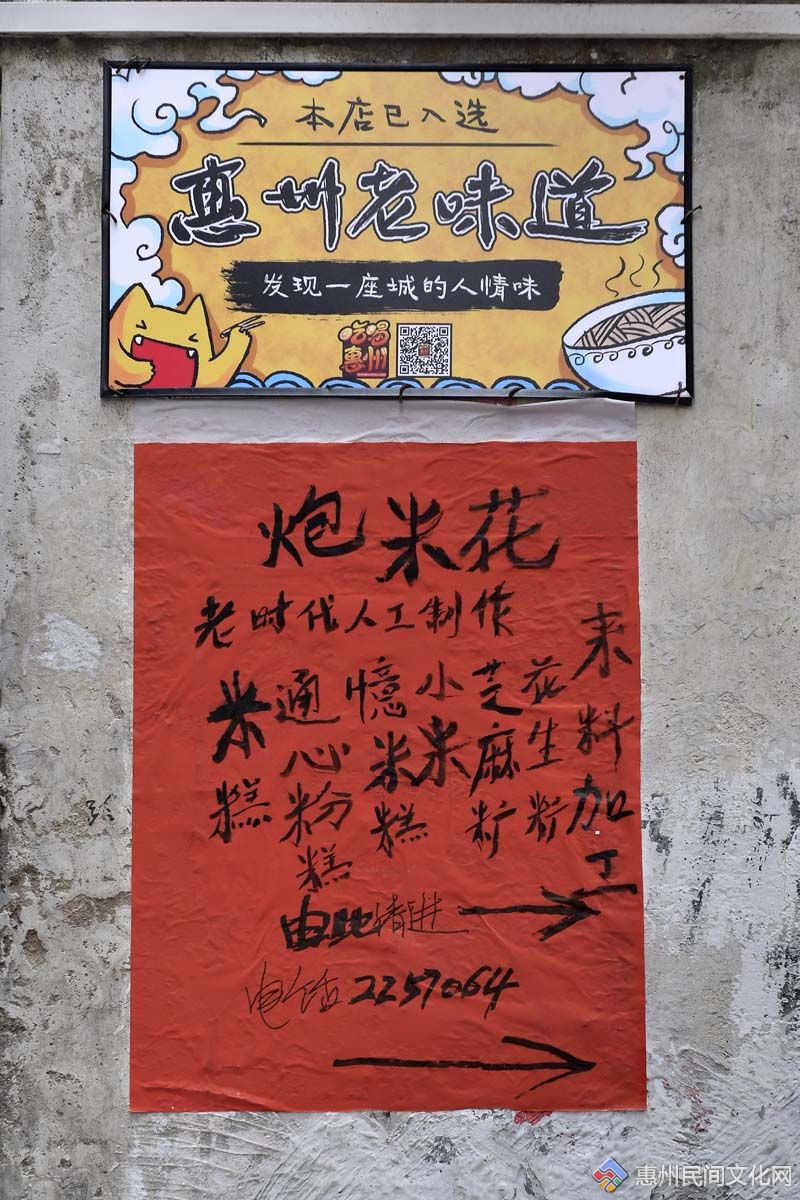 本店已入选
惠州老味道
发现一座城的人情味
吃喝
惠州
炮米花
老时代人工制作
米糕
通心粉糕
憶米糕
小米
芝麻
花生
来料加工
由此请进
电话2257064
惠州民间文化网